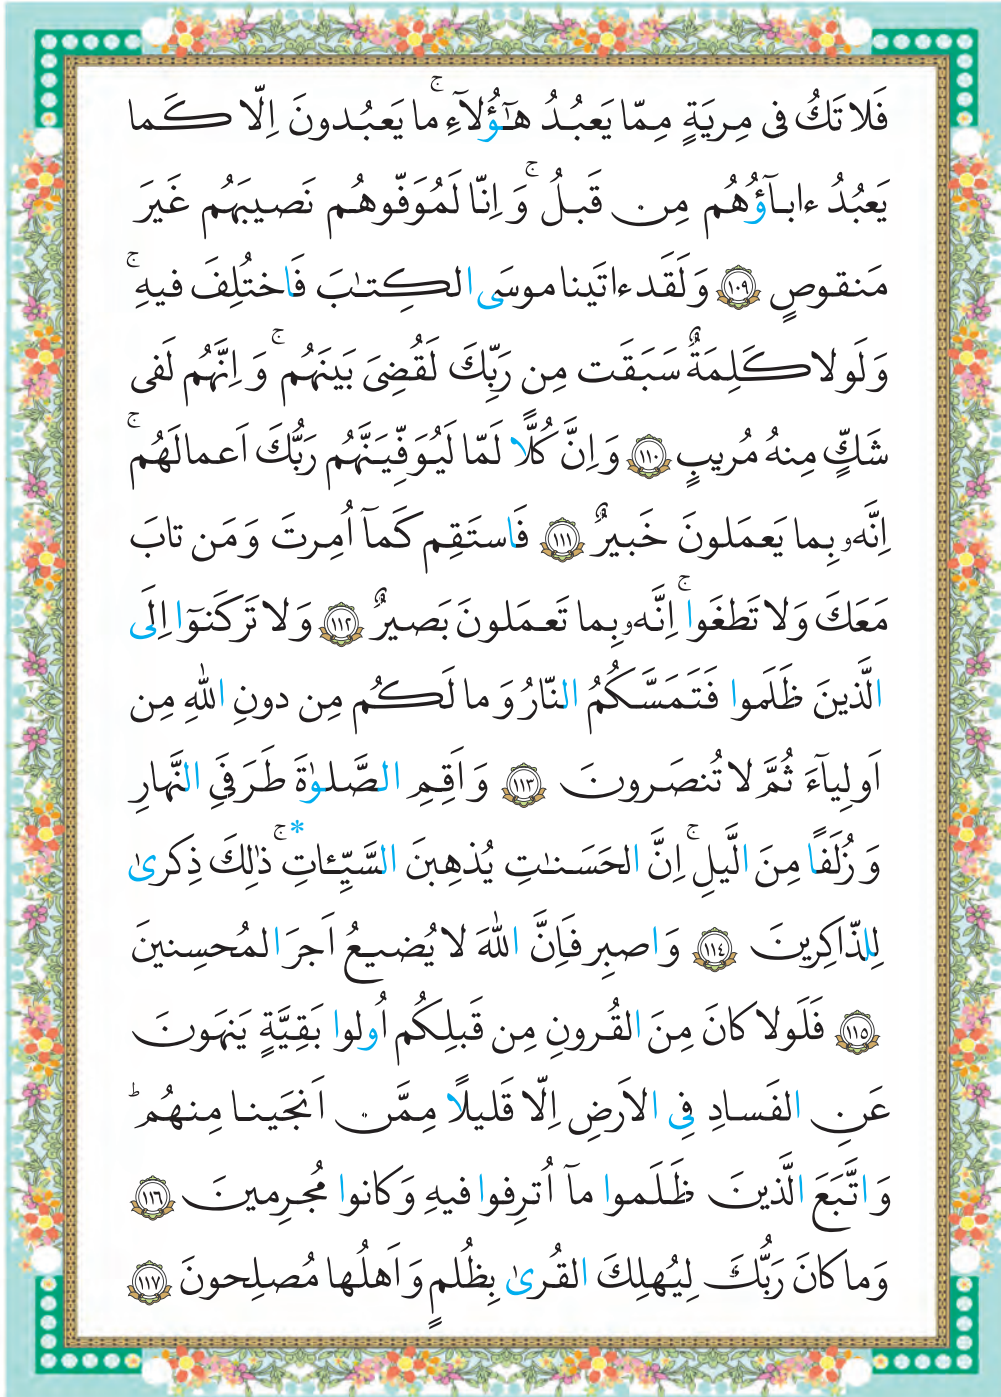 فَلا تَكُ فی مِریَةٍ مِمّا یَعبُدُ هٰٓؤُلآءِ ۚ ما یَعبُدونَ اِلّا کَما
یَعبُدُ ءابآؤُهُم مِن قَبلُ ۚ وَ اِنّا لَمُوَفّوهُم نَصیبَهُم غَیرَ
مَنقوصٍ ﴿١٠٩﴾ وَ لَقَد ءاتَینا موسَی الکِتٰبَ فَاختُلِفَ فیهِ ۚ
وَ لَولا کَلِمَةٌ سَبَقَت مِن رَبِّکَ لَقُضِیَ بَینَهُم ۚ وَ اِنَّهُم لَفی
شَکٍّ مِنهُ مُریبٍ ﴿١١٠﴾ وَ اِنَّ کُلًّا لَمّا لَیُوَفِّیَنَّهُم رَبُّکَ اَعمالَهُم ۚ
اِنَّهو بِما یَعمَلونَ خَبیرٌ ﴿١١١﴾ فَاستَقِم کَمآ اُمِرتَ وَ مَن تابَ
مَعَکَ وَ لا تَطغَوا ۚ اِنَّهو بِما تَعمَلونَ بَصیرٌ ﴿١١٢﴾ وَ لا تَرکَنوٓا اِلَی
الَّذینَ ظَلَموا فَتَمَسَّکُمُ النّارُ وَ ما لَکُم مِن دونِ اللّٰهِ مِن
اَولِیآءَ ثُمَّ لا تُنصَرونَ ﴿١١٣﴾ وَ اَقِمِ الصَّلوٰةَ طَرَفَیِ النَّهارِ
وَ زُلَفًا مِنَ الَّیلِ ۚ اِنَّ الحَسَنٰتِ یُذهِبنَ السَّیِّـٔاتِ ۚ* ذٰلِکَ ذِکریٰ
لِلذّاکِرینَ ﴿١١٤﴾ وَ اصبِر فَاِنَّ اللّٰهَ لا یُضیعُ اَجرَ المُحسِنینَ
﴿١١٥﴾ فَلَولا کانَ مِنَ القُرونِ مِن قَبلِکُم اُولوا بَقِیَّةٍ یَنهَونَ
عَنِ الفَسادِ فِی الاَرضِ اِلّا قَلیلًا مِمَّن اَنجَینا مِنهُم ؕ
وَ اتَّبَعَ الَّذینَ ظَلَموا مآ اُترِفوا فیهِ وَ کانوا مُجرِمینَ ﴿١١٦﴾
وَ ما کانَ رَبُّکَ لِیُهلِکَ القُریٰ بِظُلمٍ وَ اَهلُها مُصلِحونَ ﴿١١٧﴾